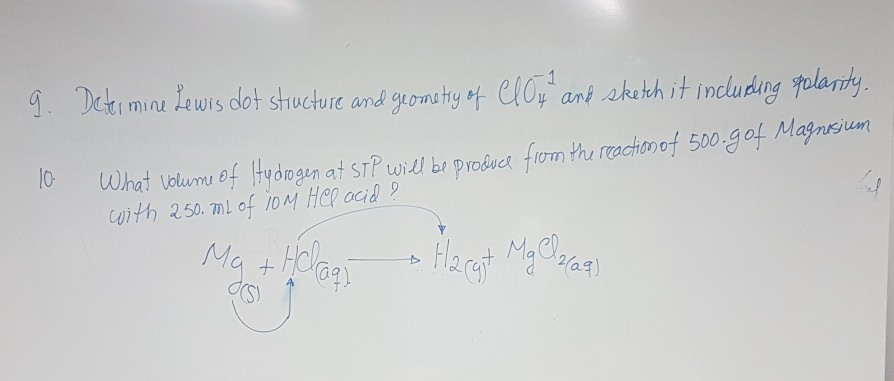 9. Determine Lewis dot structure and geometry of ClO₄⁻¹ and sketch it including polarity.
10. What volume of Hydrogen at STP will be produce from the reaction of 500.g of Magnesium
with 250. mL of 10M HCl acid ?
Mg(s) + HCl(aq) → H₂(g) + MgCl₂(aq)